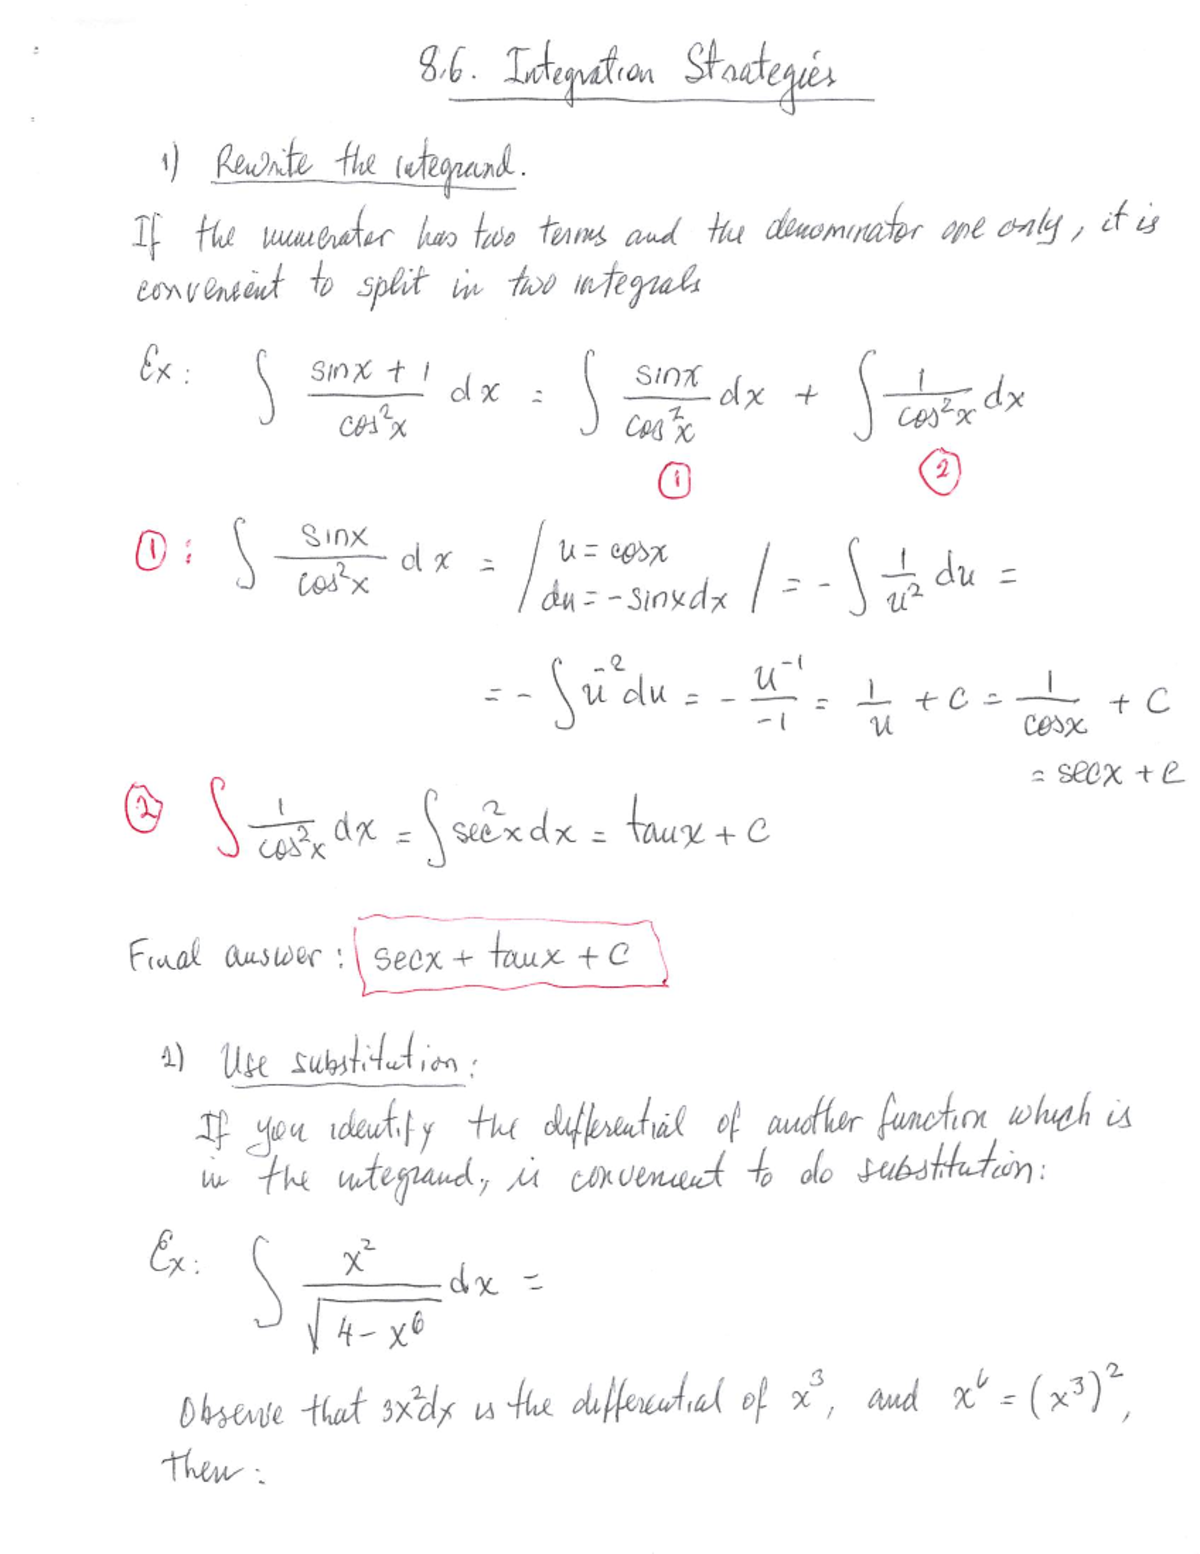 8.6. Integration Strategies
1) Rewrite the integrand.
If the numerator has two terms and the denominator one only, it is
convenient to split in two integrals
Ex: ∫ (sinx + 1)/(cos²x) dx = ∫ sinx/cos²x dx + ∫ 1/cos²x dx
① ②
①: ∫ sinx/cos²x dx = / u = cosx du = -sinxdx / = - ∫ 1/u² du =
= - ∫ u⁻² du = - u⁻¹/-1 = 1/u + C = 1/cosx + C
= secx + C
② ∫ 1/cos²x dx = ∫ sec²x dx = tanx + C
Final answer: secx + tanx + C
2) Use substitution:
If you identify the differential of another function which is
in the integrand, is convenient to do substitution:
Ex: ∫ x²/√(4-x⁶) dx =
Observe that 3x²dx is the differential of x³, and x⁶ = (x³)²,
then: